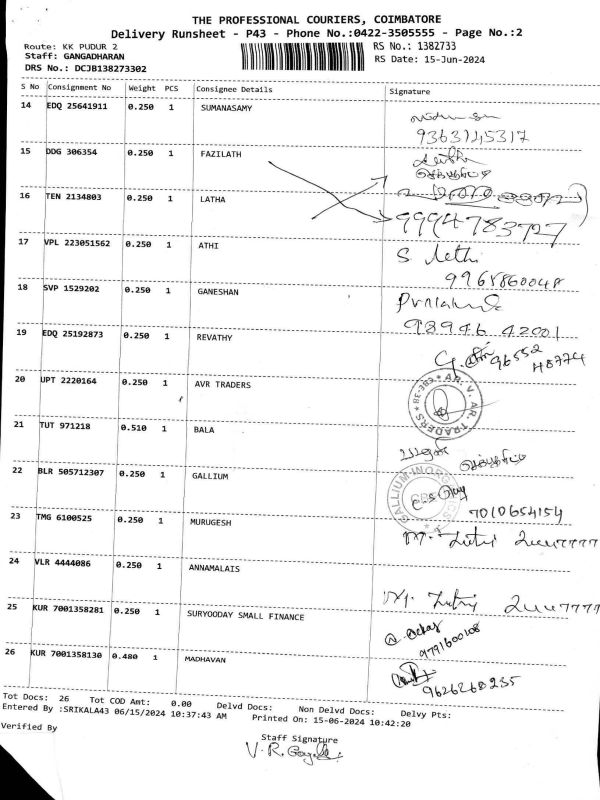 THE PROFESSIONAL COURIERS, COIMBATORE
Delivery Runsheet - P43 - Phone No.:0422-3505555 - Page No.:2
Route: KK PUDUR 2
RS No.: 1382733
Staff: GANGADHARAN
RS Date: 15-Jun-2024
DRS No.: DCJB138273302
S No Consignment No Weight PCS Consignee Details Signature
14 EDQ 25641911 0.250 1 SUMANASAMY
9363145317
15 DDG 306354 0.250 1 FAZILATH
16 TEN 2134803 0.250 1 LATHA
9994783727
17 VPL 223051562 0.250 1 ATHI
S
9965860048
18 SVP 1529202 0.250 1 GANESHAN
98946 42001
19 EDQ 25192873 0.250 1 REVATHY
96552
H8774
20 UPT 2220164 0.250 1 AVR TRADERS
AR. V. AR. TRADERS
21 TUT 971218 0.510 1 BALA
22 BLR 505712307 0.250 1 GALLIUM
7010654154
23 TMG 6100525 0.250 1 MURUGESH
24 VLR 4444086 0.250 1 ANNAMALAIS
25 KUR 7001358281 0.250 1 SURYOODAY SMALL FINANCE
9791600108
26 KUR 7001358130 0.480 1 MADHAVAN
9626268235
Tot Docs: 26 Tot COD Amt: 0.00 Delvd Docs: Non Delvd Docs: Delvy Pts:
Entered By :SRIKALA43 06/15/2024 10:37:43 AM Printed On: 15-06-2024 10:42:20
Verified By
Staff Signature